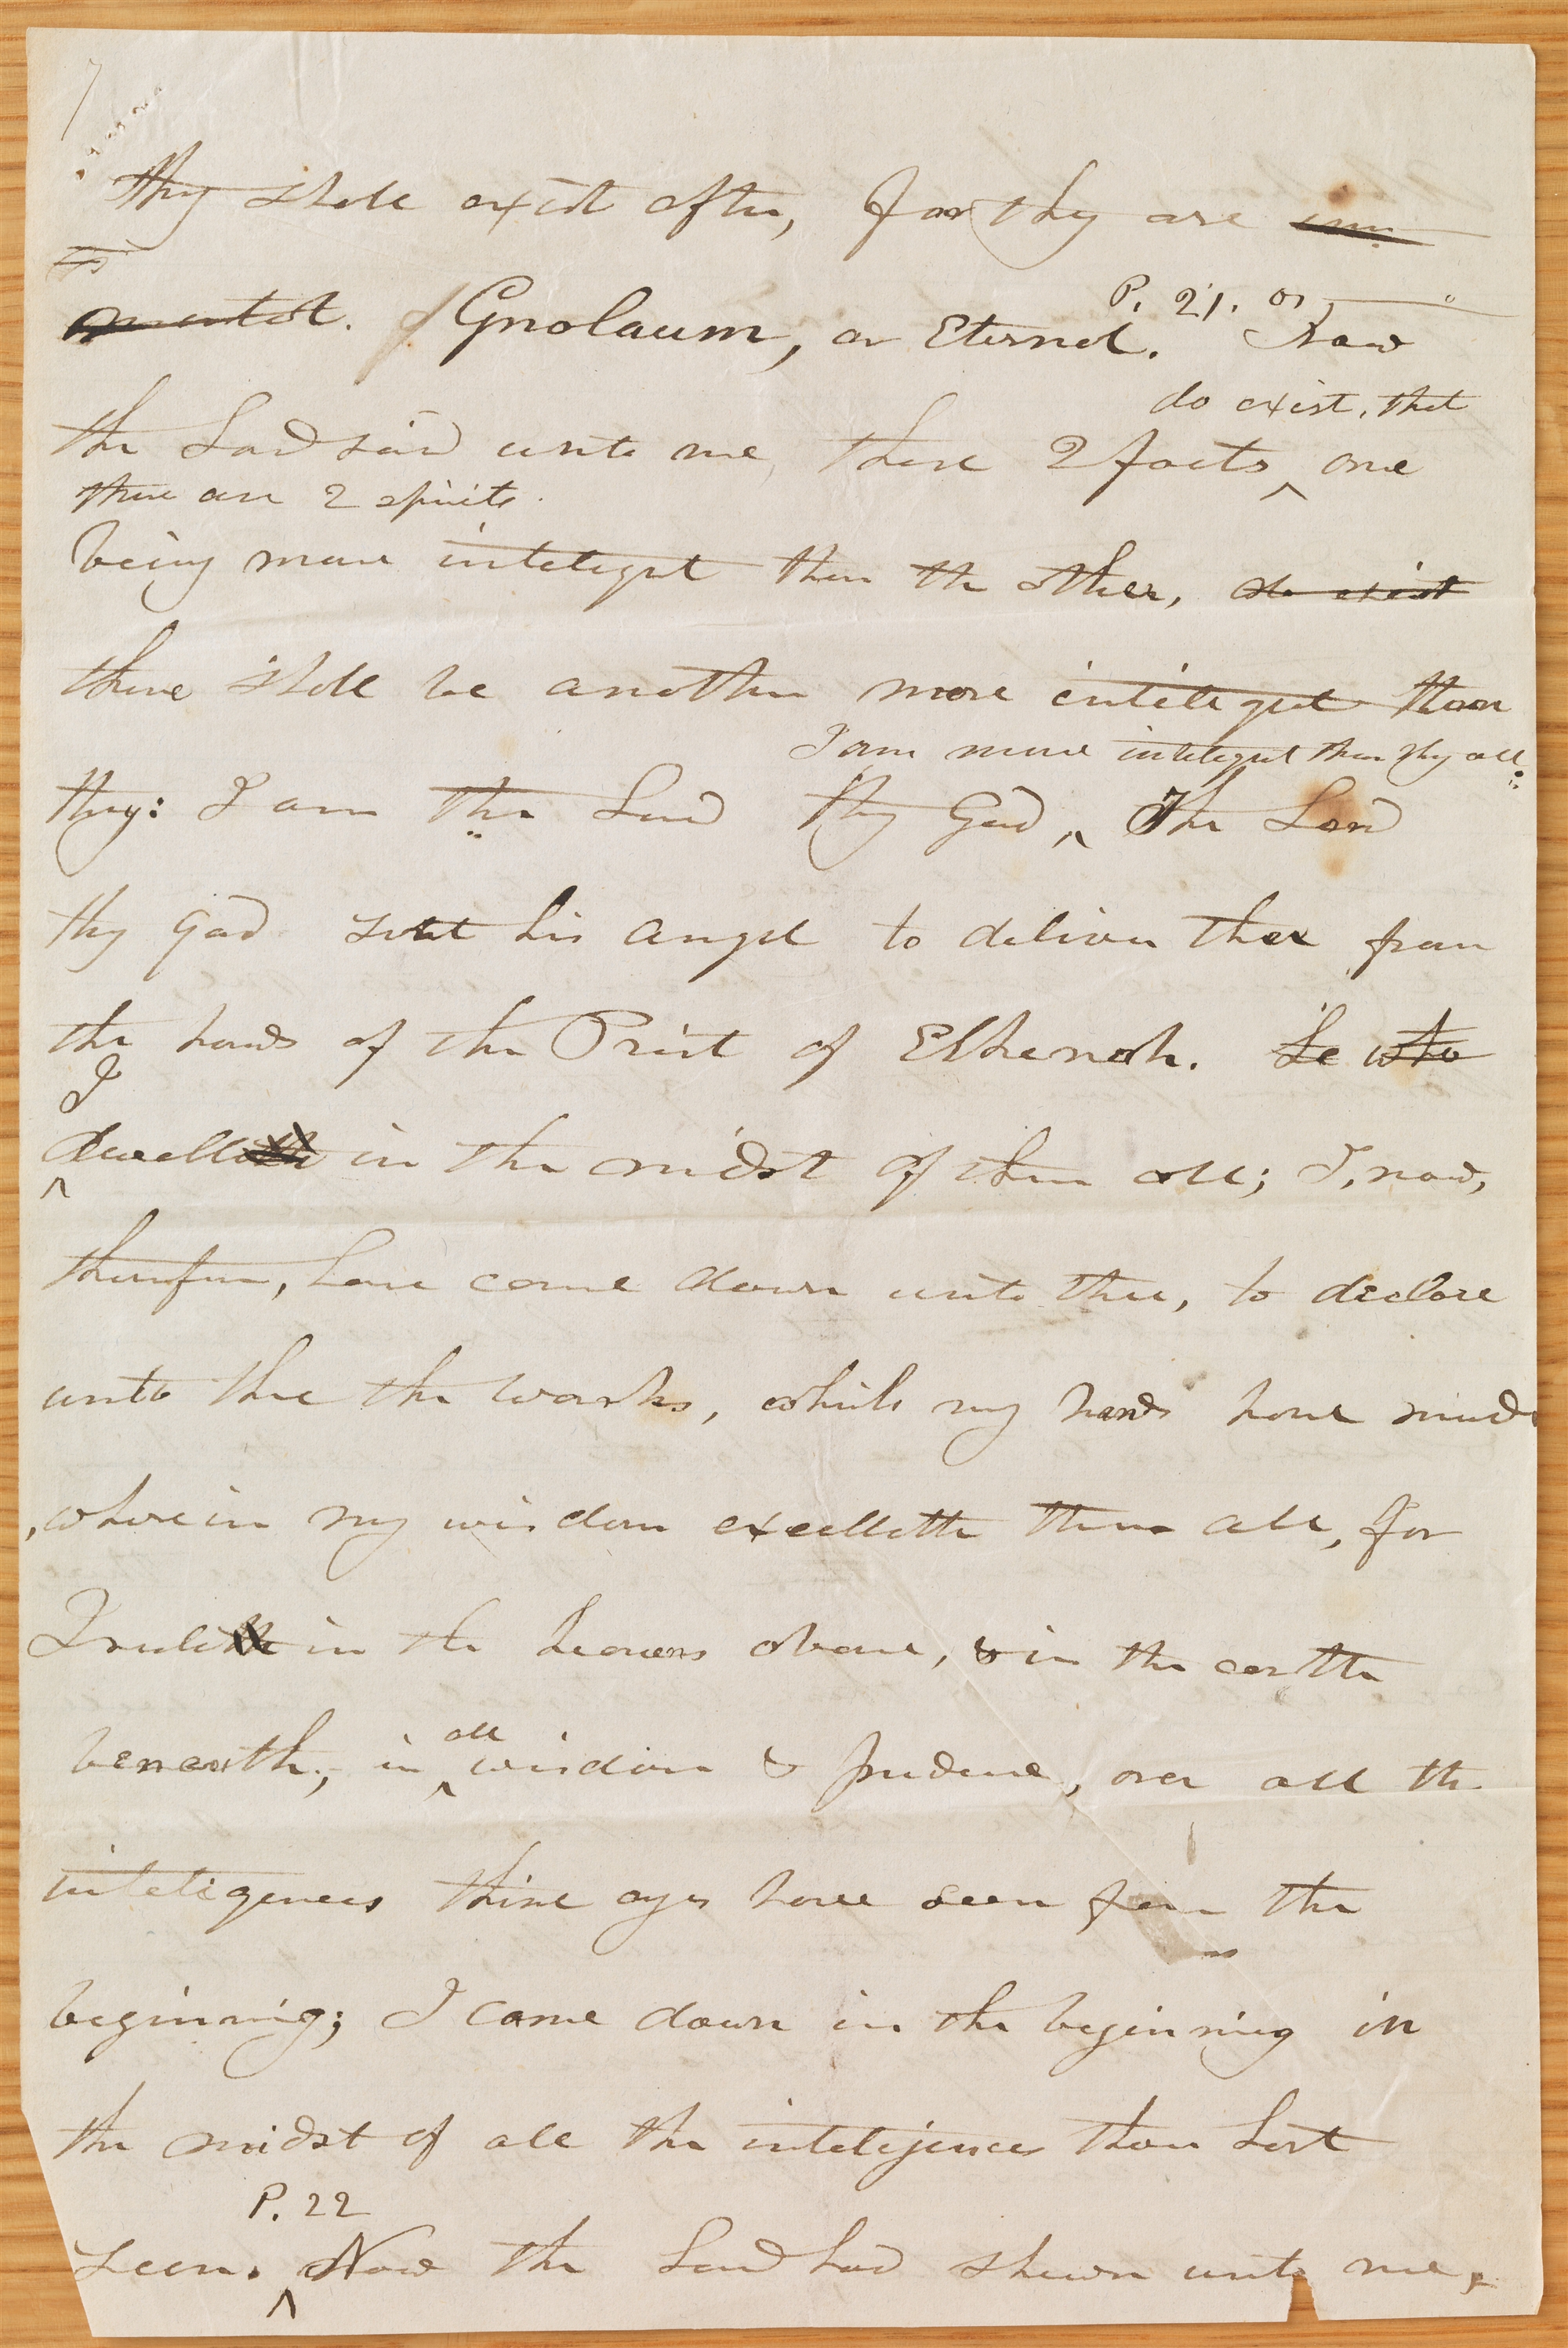 7
they shall exist after, for they are imm
mortal. Gnolaum, or Eternal. Now
P. 21. or
the Lord said unto me, these 2 facts do exist, that one
there are 2 spirits
being more inteligent than the other, do exist
there shall be another more inteligent than
I am more inteligent than they all.
they: I am the Lord thy God, The Lord
thy God sent his angel to deliver thee from
the hands of the Priest of Elkenah. He who
I
dwelleth in the midst of them all; I, now,
therefore, have come down unto thee, to declare
unto thee the works, which my hands have made
, wherein my wisdom excelleth them all, for
I ruleth in the heavens above, & in the earth
beneath, in all wisdom & prudence, over all the
inteligences thine eyes have seen from the
beginning; I came down in the beginning in
the midst of all the inteligences thou hast
P. 22
seen. Now the Lord had shewn unto me,